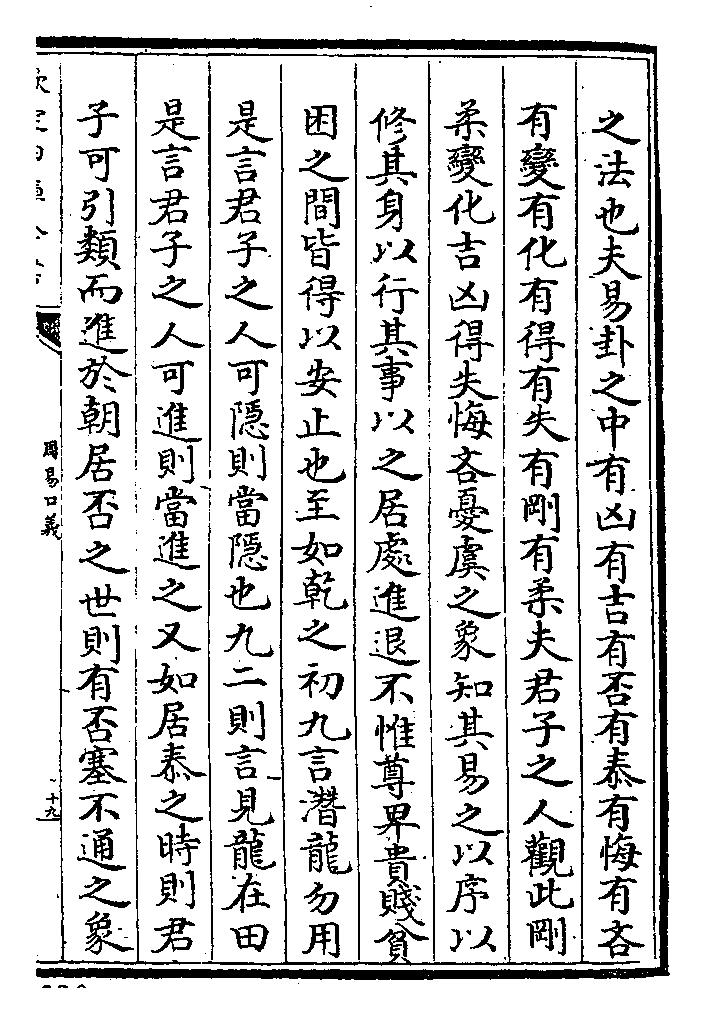 之法也夫易卦之中有凶有吉有否有泰有悔有吝
有變有化有得有失有剛有柔夫君子之人觀此剛
柔變化吉凶得失悔吝憂虞之象知其易之以序以
修其身以行其事以之居處進退不惟尊卑貴賤貧
困之間皆得以安止也至如乾之初九言潛龍勿用
是言君子之人可隱則當隱也九二則言見龍在田
是言君子之人可進則當進之又如居泰之時則君
子可引類而進於朝居否之世則有否塞不通之象
周易口義
十九